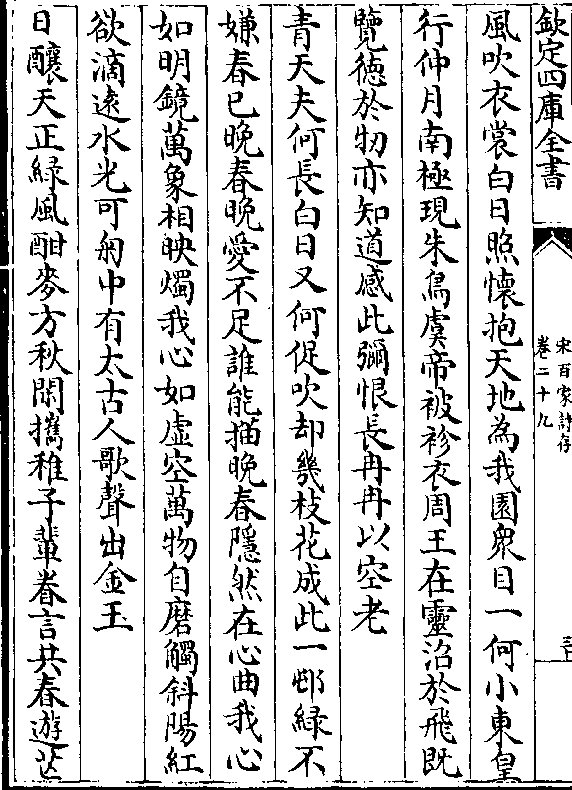 欽定四庫全書
宋百家詩存
卷二十九
風吹衣裳白日照懷抱天地為我園衆目一何小東皇
行仲月南極現朱鳥虞帝被袗衣周王在靈沼於飛既
覽徳於牣亦知道感此彌恨長冉冉以空老
青天夫何長白日又何促吹却幾枝花成此一邨緑不
嫌春已晩春晩愛不足誰能描晩春隱然在心曲我心
如明鏡萬象相映燭我心如虚空萬物自磨觸斜陽紅
欲滴逺水光可掬中有太古人歌聲出金玉
日釀天正緑風酣麥方秋閒攜稚子輩眷言共春遊